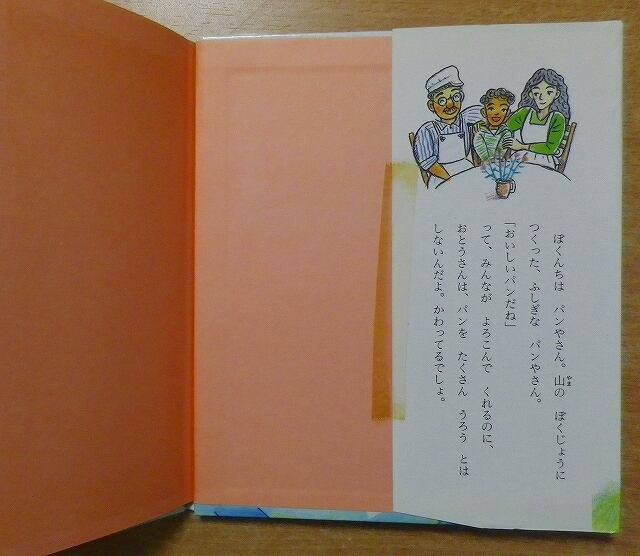 ぼくんちは　パンやさん。山の　ぼくじょうに
つくった、ふしぎな　パンやさん。
「おいしいパンだね」
って、みんなが　よろこんで　くれるのに、
おとうさんは、パンを　たくさん　うろう　とは
しないんだよ。かわってるでしょ。